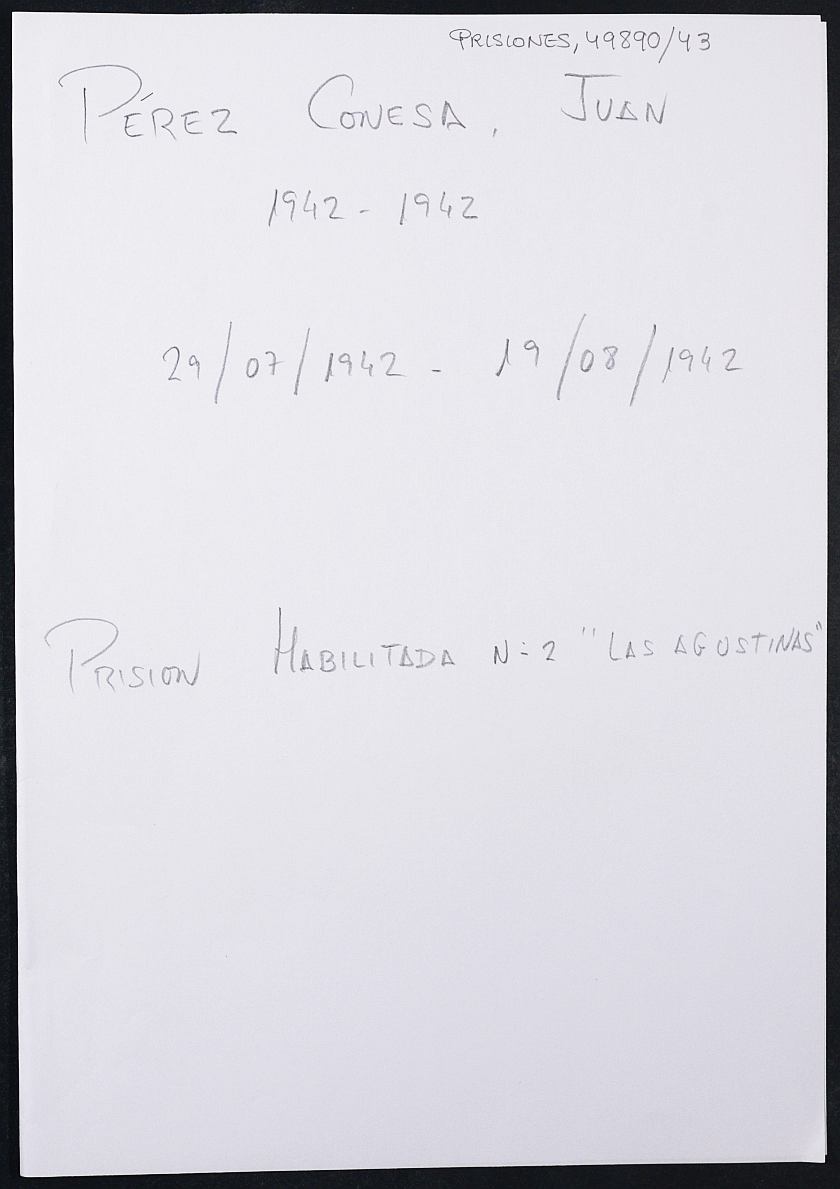 PRISIONES, 49890/43
PÉREZ CONESA, JUAN
1942 - 1942
29/07/1942 - 19/08/1942
PRISION HABILITADA Nº 2 "LAS AGUSTINAS"